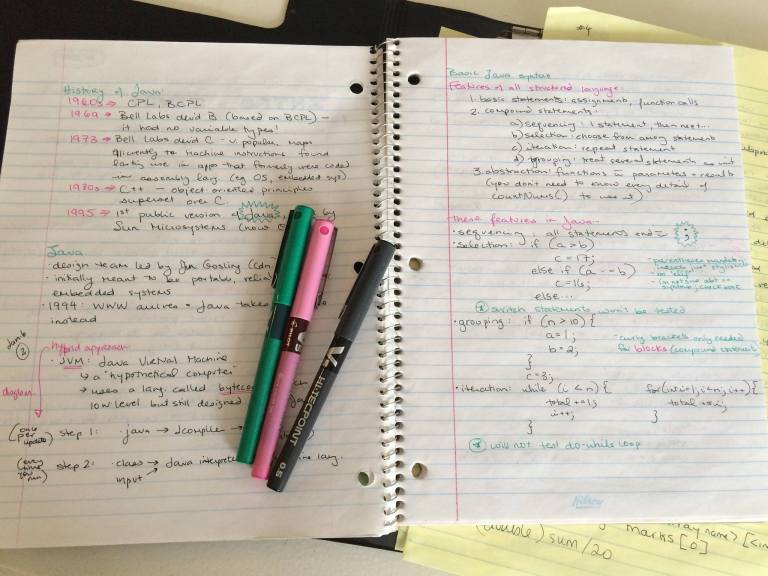 History of Java:
1960s → CPL, BCPL
1969 → Bell Labs devid B (based on BCPL) -
it had no variable types!
1973 → Bell Labs devid C - v. popular, maps
efficiently to machine instructions found
use in apps that formerly were coded
in assembly lang. (eg OS, embedded sys)
1980s → C++ - object oriented principles
superset over C.
1995 → 1st public version of Java, by
Sun Microsystems (now
Java
· design team led by Gosling (cdn
· initially meant to be portable,
embedded systems
· 1994: WWW → Java takes
instead
Jan 6
2
Hybrid approach
· JVM: Java Virtual Machine
↳ a "hypothetical computer"
↳ uses a lang. called
low level but still designed
diagram
(only per update) step 1: .java → Jcompile →
(every time you run) step 2: .class → Java lang.
input
V5
PILOT
HI-TECPOINT
0.5
#4
Basic Java syntax
Features of all structured language:
1. basic statements: assignments, function calls
2. compound statements:
a) sequencing: 1 statement, then next...
b) selection: choose from among statements
c) iteration: repeat statement
d) grouping: treat several statements as unit
3. abstraction: functions parameters + results
(you don't need to know every detail of
countNums() to use it)
These features in Java-
· sequencing: all statements end in ;
· selection: if (a > b)
c = 17;
else if (a == b)
c = 16;
else...
· parentheses mandatory
switch statements won't be tested
· grouping: if (n > 10) {
a = 1;
b = 2;
}
c = 3;
· curly brackets only needed
for blocks (compound statements)
· iteration: while (i < n) {
total += 1;
i++;
}
for(int i=1; i<n; i++) {
}
will not test do-while loop
Hilroy
marks [0]
(double) sum/20